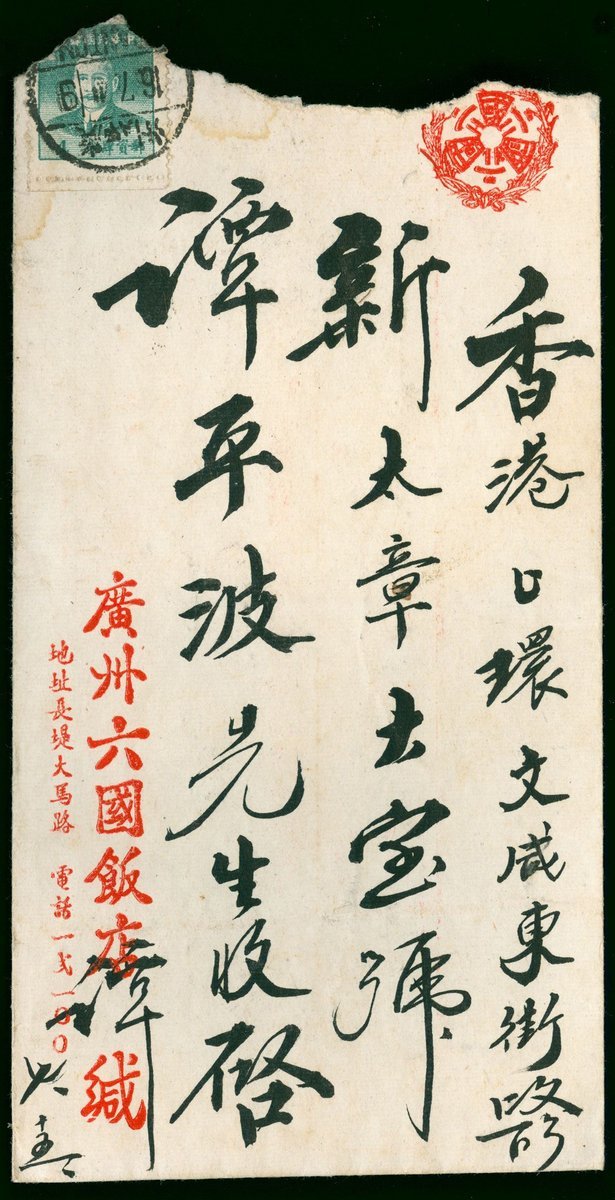 香港上環文咸東街
新太章大宝號
譚平波先生收啓
廣州六國飯店 譚 緘
地址長堤大馬路 電話一弍一00